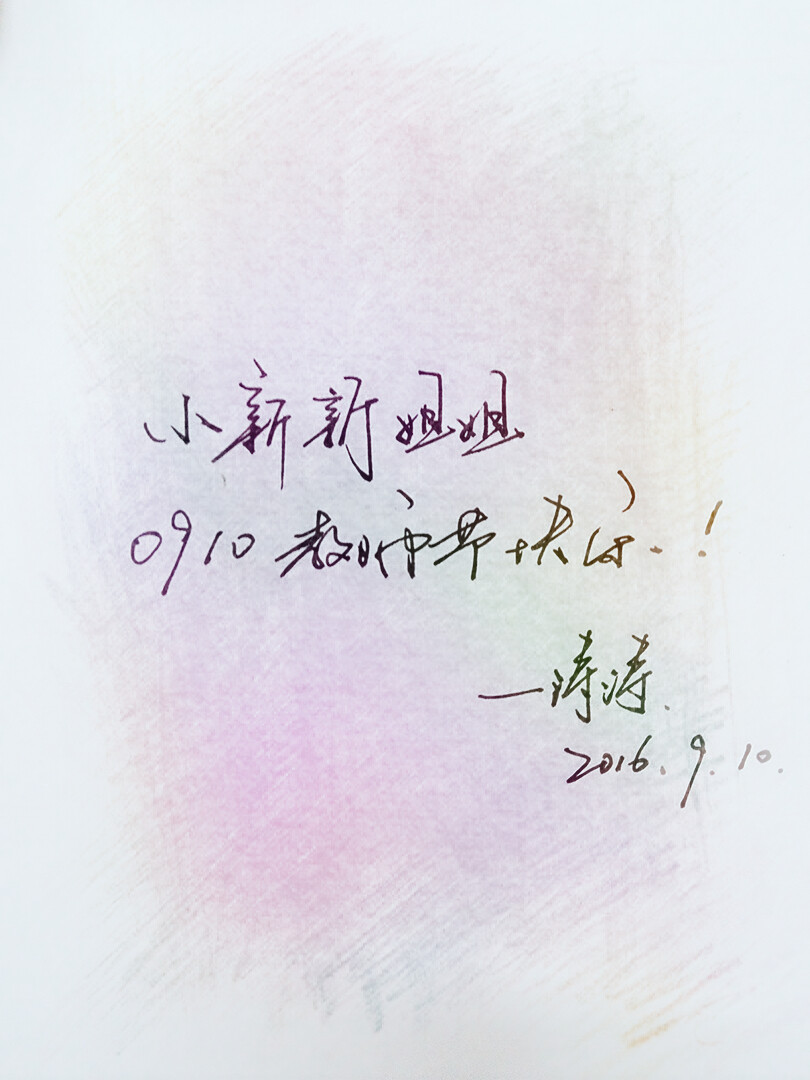 小新新姐姐
0910 教师节快乐.!
—涛涛.
2016.9.10.